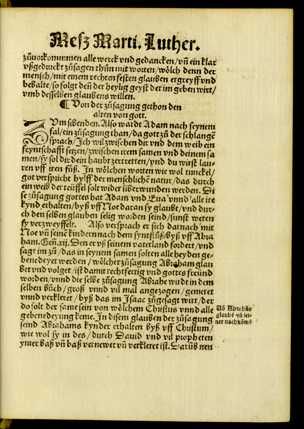 Mesz Marti. Luther.
zůuorkommen alle werck vnd gedancken/ vñ ein klar
vßgedruckt zůsagen thůn mit worten/ wölch denn der
mensch/ mit einem rechten festen glauben ergreyff vnd
behalte/ so folgt deñ der heylig geyst der im geben wirt/
vmb desselben glaubens willen.
¶ Von der zůsagung gethon den
alten von gott.
Zum sibenden. Also ward Adam nach seynem
fal/ ein zůsagung than/ da gott zů der schlangẽ
sprach. Ich wil zwischen dir vnd dem weib ein
feyntschafft setzen/ zwischen irem samen vnd deinem sa
men/ sy sol dir dein haubt zertretten/ vnd du wirst lau⸗
ren vff iren füß. In wölchen worten wie wol tunckel/
got verspricht hylff der menschlichẽ natur/ das durch
ein weib der teüffel solt wider überwunden werden. Di
se zůsagung gottes hat Adam vnd Eua vnnd alle ire
kynd erhalten/ byß vff Noe daran sy glaubt/ vnd dur⸗
ch den selben glauben selig worden seind/ sunst weren
sy verzweyffelt. Also versprach er sich darnach mit
Noe vñ seinẽ kindern nach dem syntfluß/ byß vff Abra
ham. Geñ. xij. Den er vß seinem vaterland fordert/ vnd
sagt im zů/ das in seynem samen solten alle heyden ge⸗
benedeyet werden/ wölcher zůsagung Abraham glau
bet vnd volget/ ist damit rechtfertig vnd gottes freünd
worden/ vnnd die selbe zůsagung Abrahe wirdt in dem
selben bůch/ groß vnnd vil mal angezogen/ gemeret
vnnd verkleret/ byß das im Isaac zůgesagt wirt/ der
do solt der same sein von wölchem Christus vnnd alle
gebenedeyung keme. In disem glauben der zůsagung
seind Abrahams kynder erhalten byß vff Christum/
wie wol sy in des/ durch Dauid vnd vil propheten
ymer baß vñ baß vernewet vñ verkleret ist. Darüß neu
glaubt vñ sei⸗
ner nachkõmẽ